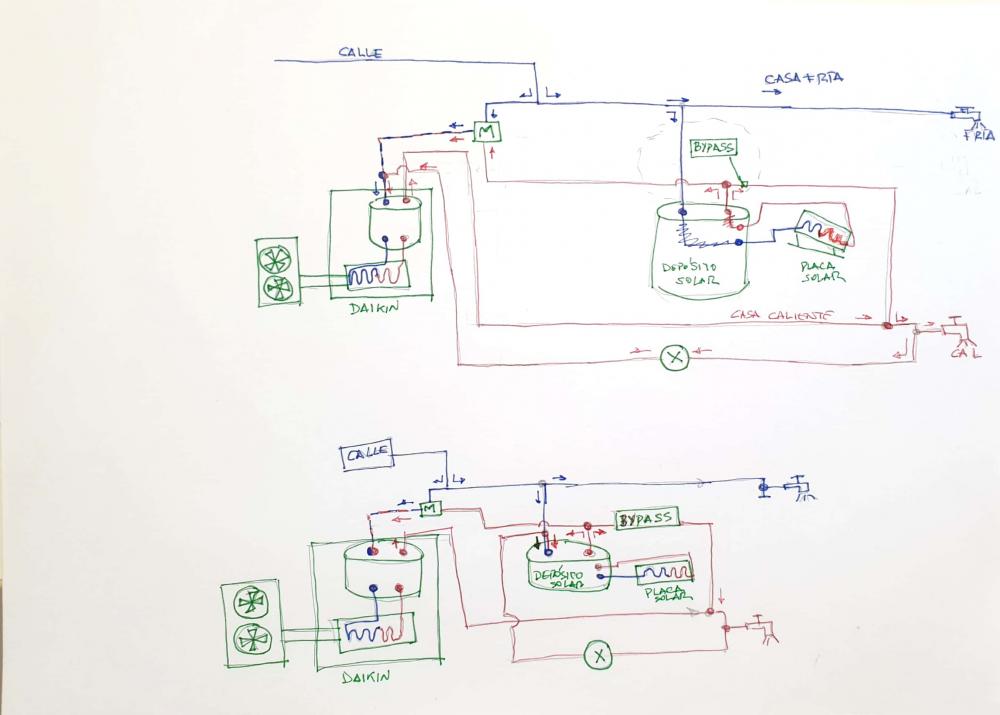 CALLE
CASA FRIA
M
FRIA
BYPASS
DEPÓSITO
SOLAR
PLACA
SOLAR
DAIKIN
CASA CALIENTE
X
CAL
CALLE
M
BYPASS
DEPÓSITO
SOLAR
PLACA
SOLAR
X
DAIKIN